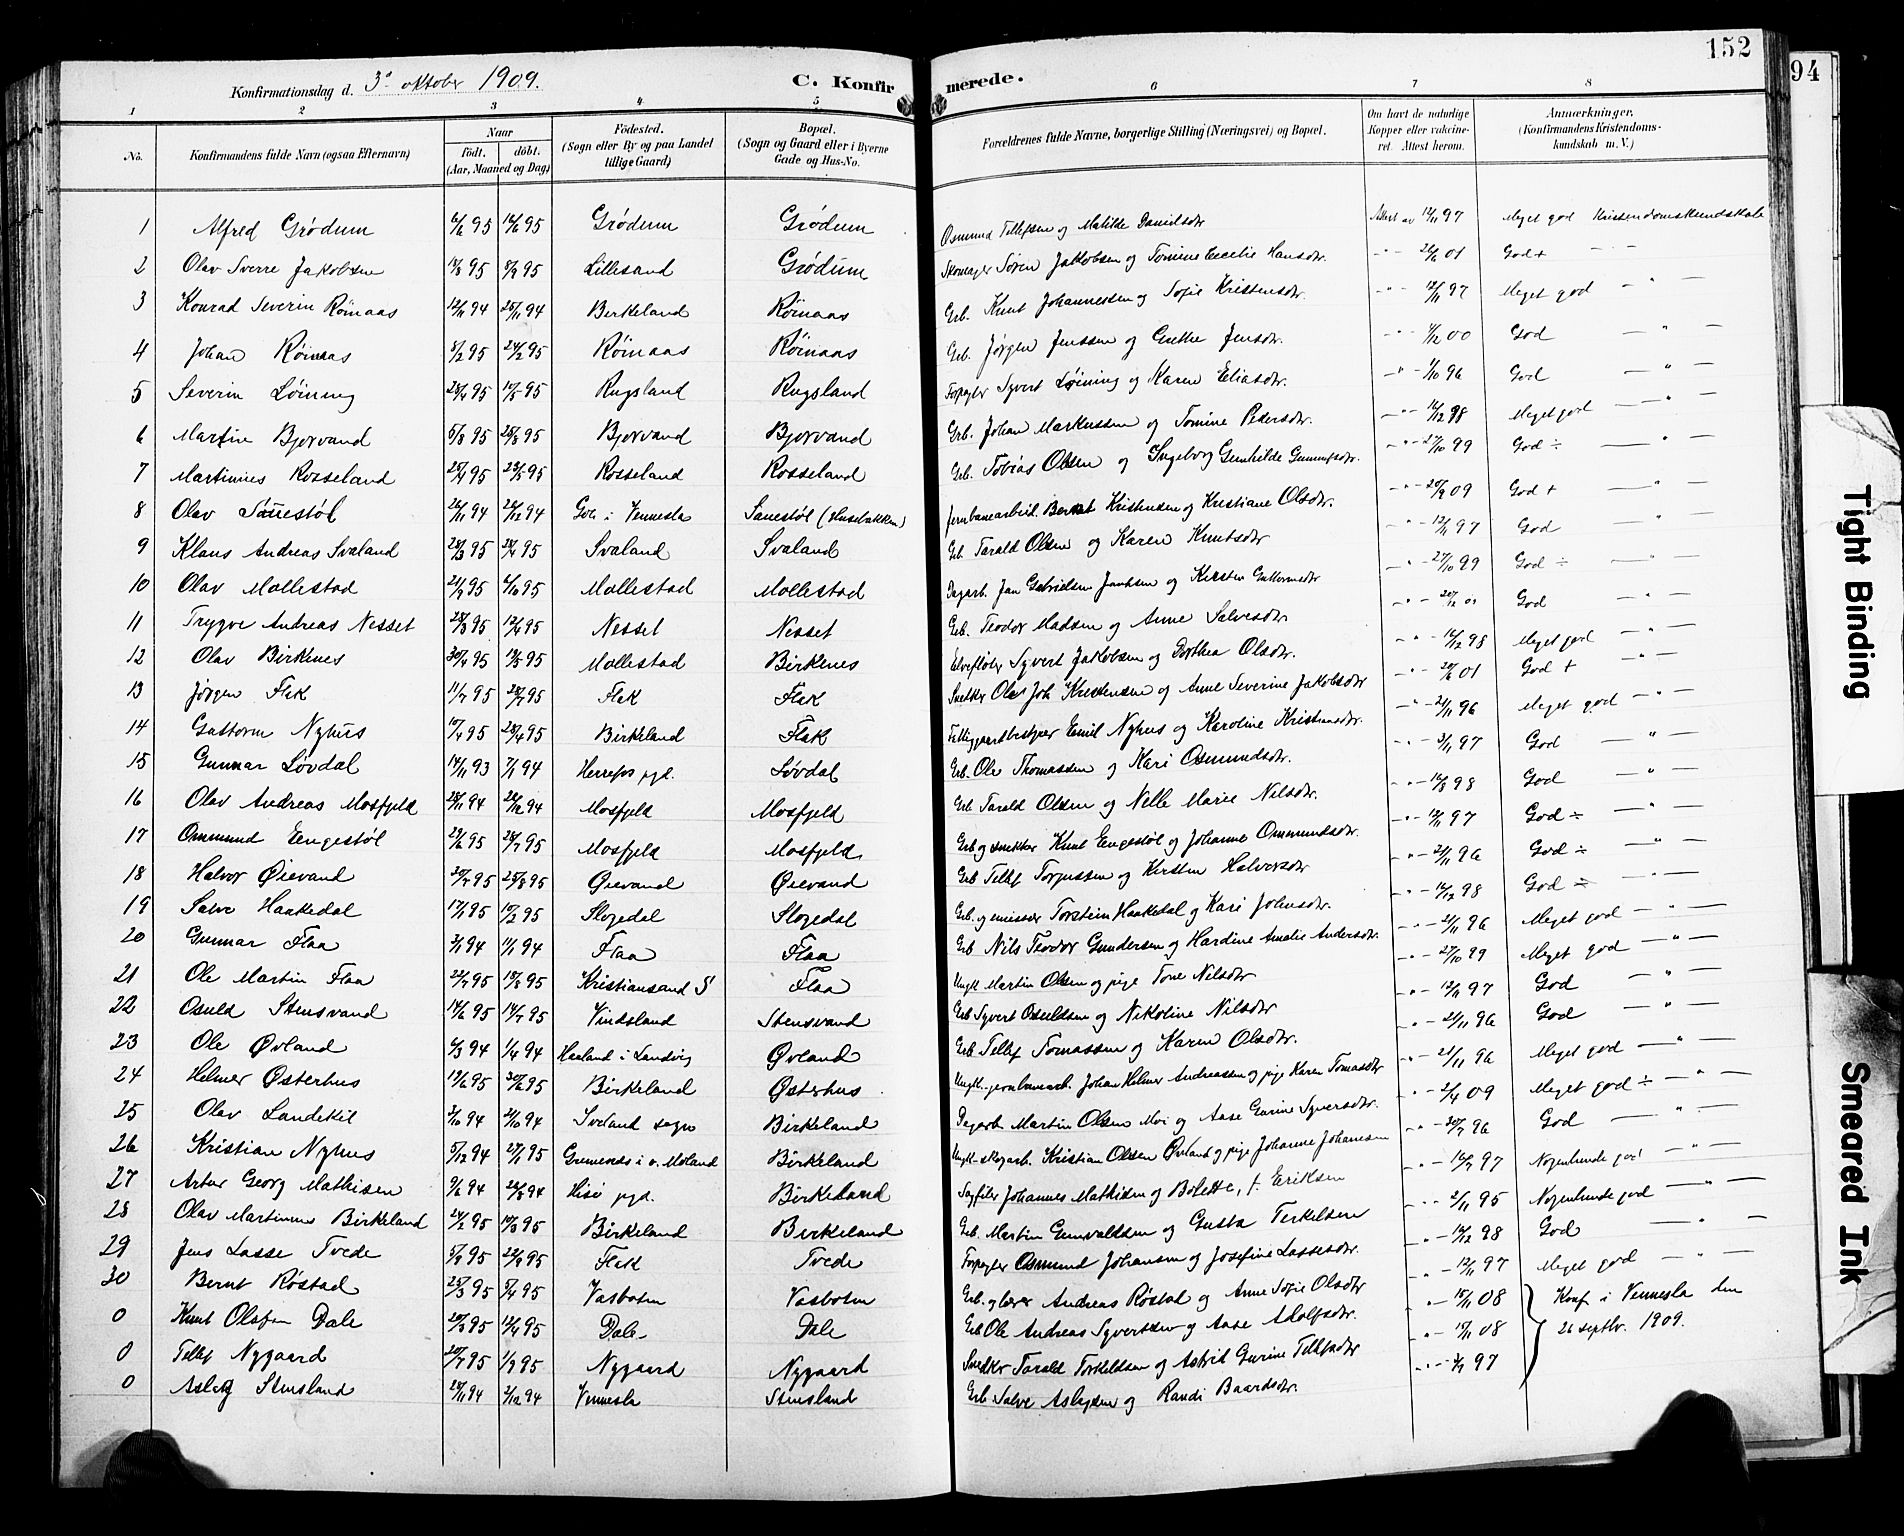 152
94
Konfirmationsdag d. 3die oktober 1909. C. Konfirmerede.
1 2 3 4 5 6 7 8
No. Konfirmandens fulde Navn (ogsaa Efternavn) Naar født. døbt. (Aar, Maaned og Dag) Fødested. (Sogn eller By og paa Landet tillige Gaard) Bopæl. (Sogn og Gaard eller i Byerne Gade og Hus-No. Forældrenes fulde Navne, borgerlige Stilling (Næringsvei) og Bopæl. Om havt de naturlige Kopper eller vakcineret. Attest herom. Anmærkninger. (Konfirmandens Kristendomskundskab m. V.)
1 Alfred Grødum 6/6 95 16/6 95 Grødum Grødum Osmund Tellefsen og Matilde Danielsdtr Attest av 12/11 97 Meget god Kristendomskundskab
2 Olav Sverre Jakobsen 8/9 95 Lillesand Grødum Skomager Søren Jakobsen og Tomine Cecilie Hansdtr. 26/6 01 God+
3 Konrad Severin Røinaas 12/11 94 25/11 94 Birkeland Røinaas Grb. Knut Johannessen og Sofie Kristensdtr. 12/11 97 Meget god — " —
4 Johan Røinaas 5/2 95 24/2 95 Røinaas Røinaas Grb. Jørgen Jenssen og Grethe Jensdtr. 00 God — " —
5 Severin Løining 28/4 95 19/5 95 Rugsland Rugsland Forpagter Syvert Løining og Karen Eliasdtr. 1/10 96 God — " —
6 Martin Bjorvand 5/8 95 25/8 95 Bjorvand Bjorvand Grb. Johan Markussen og Tomine Pedersdtr. 16/12 98 Meget god — " —
7 Martinus Rosseland 25/4 95 23/5 95 Rosseland Rosseland Grb. Tobias Olsen og Ingeborg Gunhilde Gunnufsdtr. 27/10 99 God ÷ — " —
8 Olav Sauestøl 26/11 94 26/12 94 i Vennesla Sauestøl Jernbanearbeid. Bernt Kristensen og Kristiane Olsdtr. 20/9 09 God + — " —
9 Klaus Andreas Svaland 28/3 95 28/4 95 Svaland Svaland Grb. Tarald Olsen og Karen Knutsdtr 12/11 97 God — " —
10 Olav Mollestad 21/9 95 6/10 95 Mollestad Mollestad Dagarb. Jan Gabrielsen og Kirsten Guttormsdtr 27/10 99 God ÷ — " —
11 Trygve Andreas Nesset 28/3 95 12/4 95 Nesset Nesset Grb. Teodor Madsen og Anne Salvesdtr. 20/12 01 God — " —
12 Olav Birkenes 30/4 95 19/5 95 Mollestad Birkenes Elvefløter Syvert Jakobsen og Dorthea Olsdtr. 16/12 98 Meget god — " —
13 Jørgen Flak 11/7 95 28/7 95 Flak Flak Snekker Ole Joh Kristensen og Anne Severine Jakobsdtr 20/6 01 God + — " —
14 Guttorm Nyhus 10/4 95 28/4 95 Birkeland Flak Fattiggaardbestyrer Emil Nyhus og Karoline Kristensdtr. 21/11 96 Meget god — " —
15 Gunnar Løvdal 14/11 93 7/1 94 Herrefos pgd. Løvdal Grb. Ole Thomassen og Kari Osmundsdtr. 3/11 97 God — " —
16 Olav Andreas Mosfjeld 28/11 94 26/12 94 Mosfjeld Mosfjeld Grb Tarald Olsen og Nelle Marie Nilsdtr. 16/8 98 God — " —
17 Ommund Engestøl 29/6 95 28/7 95 Mosfjeld Mosfjeld Grb og snekker Knut Engestøl og Johanne Ommundsdtr. 12/11 97 God ÷ — " —
18 Halvor Øievand 30/7 95 25/8 95 Øievand Øievand Grb Tellef Torjussen og Kirsten Halvorsdtr 21/11 96 God ÷ — " —
19 Salve Haakedal 17/1 95 17/2 95 Slogedal Slogedal Grb. og emissær Torstein Haakedal og Kari Johnsdtr. 16/12 98 God ÷ — " —
20 Gunnar Flaa 3/1 94 11/2 94 Flaa Flaa Grb Nils Teodor Gundersen og Hardine Amalie Andersdtr. 21/11 96 Meget god — " —
21 Ole Martin Flaa 22/7 95 18/8 95 Kristiansand S Flaa Ungk Martin Olsen og pige Tone Nilsdtr 27/10 99 Meget god — " —
22 Osuld Stensvand 14/6 95 14/7 95 Vindsland Stensvand Grb Syvert Osuldsen og Nikoline Nilsdtr 12/11 97 God — " —
23 Ole Øvland 6/3 94 1/4 94 Haaland i Landvig Øvland Grb Tellef Tomassen og Karen Olsdtr. 21/11 96 God — " —
24 Helmer Østerhus 12/6 95 30/6 95 Birkeland Østerhus Ungk. jernbanearb. Johan Helmer Andreassen og pige Karen Tomasdtr 21/11 96 Meget god — " —
25 Olav Landekil 3/10 94 21/10 94 Iveland sogn Birkeland Dagarb Martin Olsen Moi og Aase Gurine Syversdtr. 2/4 09 Meget god ÷ — " —
26 Kristian Nyhus 5/12 94 27/1 95 i ø. Moland Birkeland Ungk. skogarb. Kristian Olsen Øvland og pige Johanne Johansen 20/7 96 God — " —
27 Artur Georg Mathisen 9/6 94 26/8 94 Hisø pgd. Birkeland Sagfiler Johannes Mathisen og Bolette, f. Eriksen 16/7 97 Nogenlunde god — " —
28 Olav Martinus Birkeland 24/2 95 10/3 95 Birkeland Birkeland Grb. Martin Gunvaldsen og Gusta Terkelsen 2/11 95 Nogenlunde god — " —
29 Jens Lasse Tvede 5/9 95 22/9 95 Flak Tvede Forpagter Osmund Johansen og Josefine Lassesdtr. 16/12 98 God — " —
30 Bernt Røstad 25/3 95 5/4 95 Vasbotn Vasbotn Grb. og lærer Andreas Røstad og Anne Sofie Olsdtr 12/11 97 Meget god — " —
0 Knut Olafsen Dale 20/3 95 12/4 95 Dale Dale Grb Ole Andreas Syvertsen og Aase Adolfsdtr. 15/11 08 Konf i Vennesla den
0 Tellef Nygaard 20/7 95 1/9 95 Nygaard Nygaard Snedker Tarald Torkeldsen og Astrid Gurine Tellefsdtr 15/11 08 26 septbr. 1909.
0 Aslag Stensland 28/11 94 2/12 94 Vennesla Stensland Grb Salve Aslagsen og Randi Baardsdtr. 97
Tight Binding
Smeared Ink